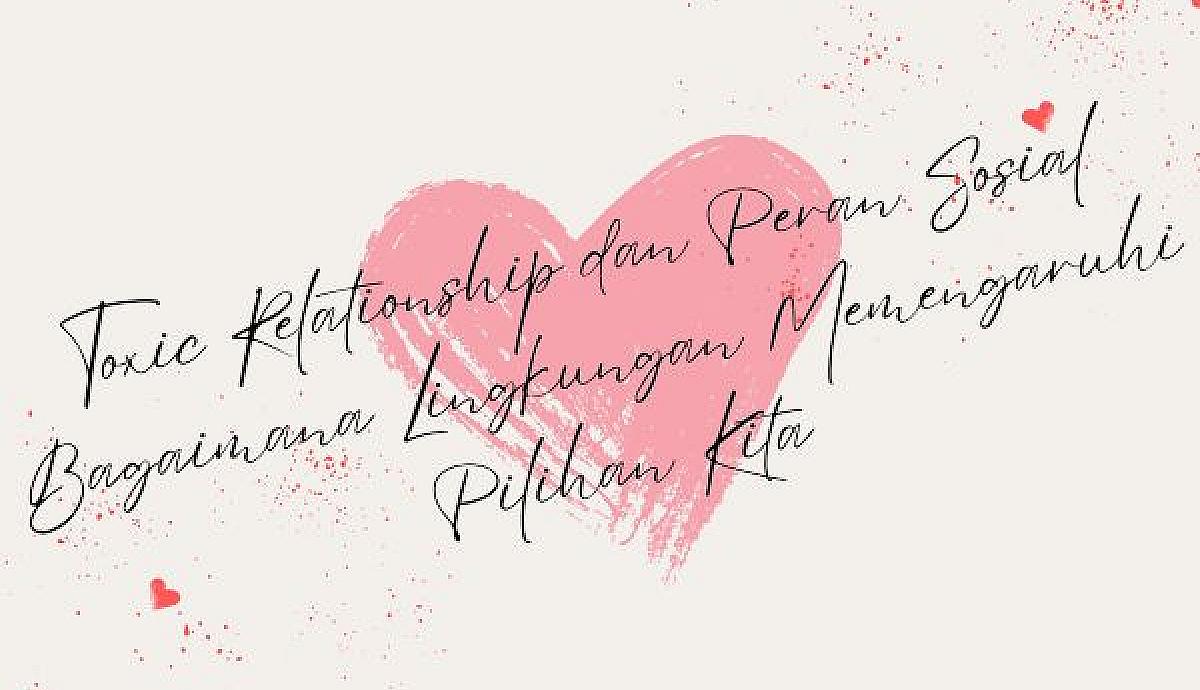 Toxic Relationship dan Peran Sosial
Bagaimana Lingkungan Memengaruhi
Pilihan Kita